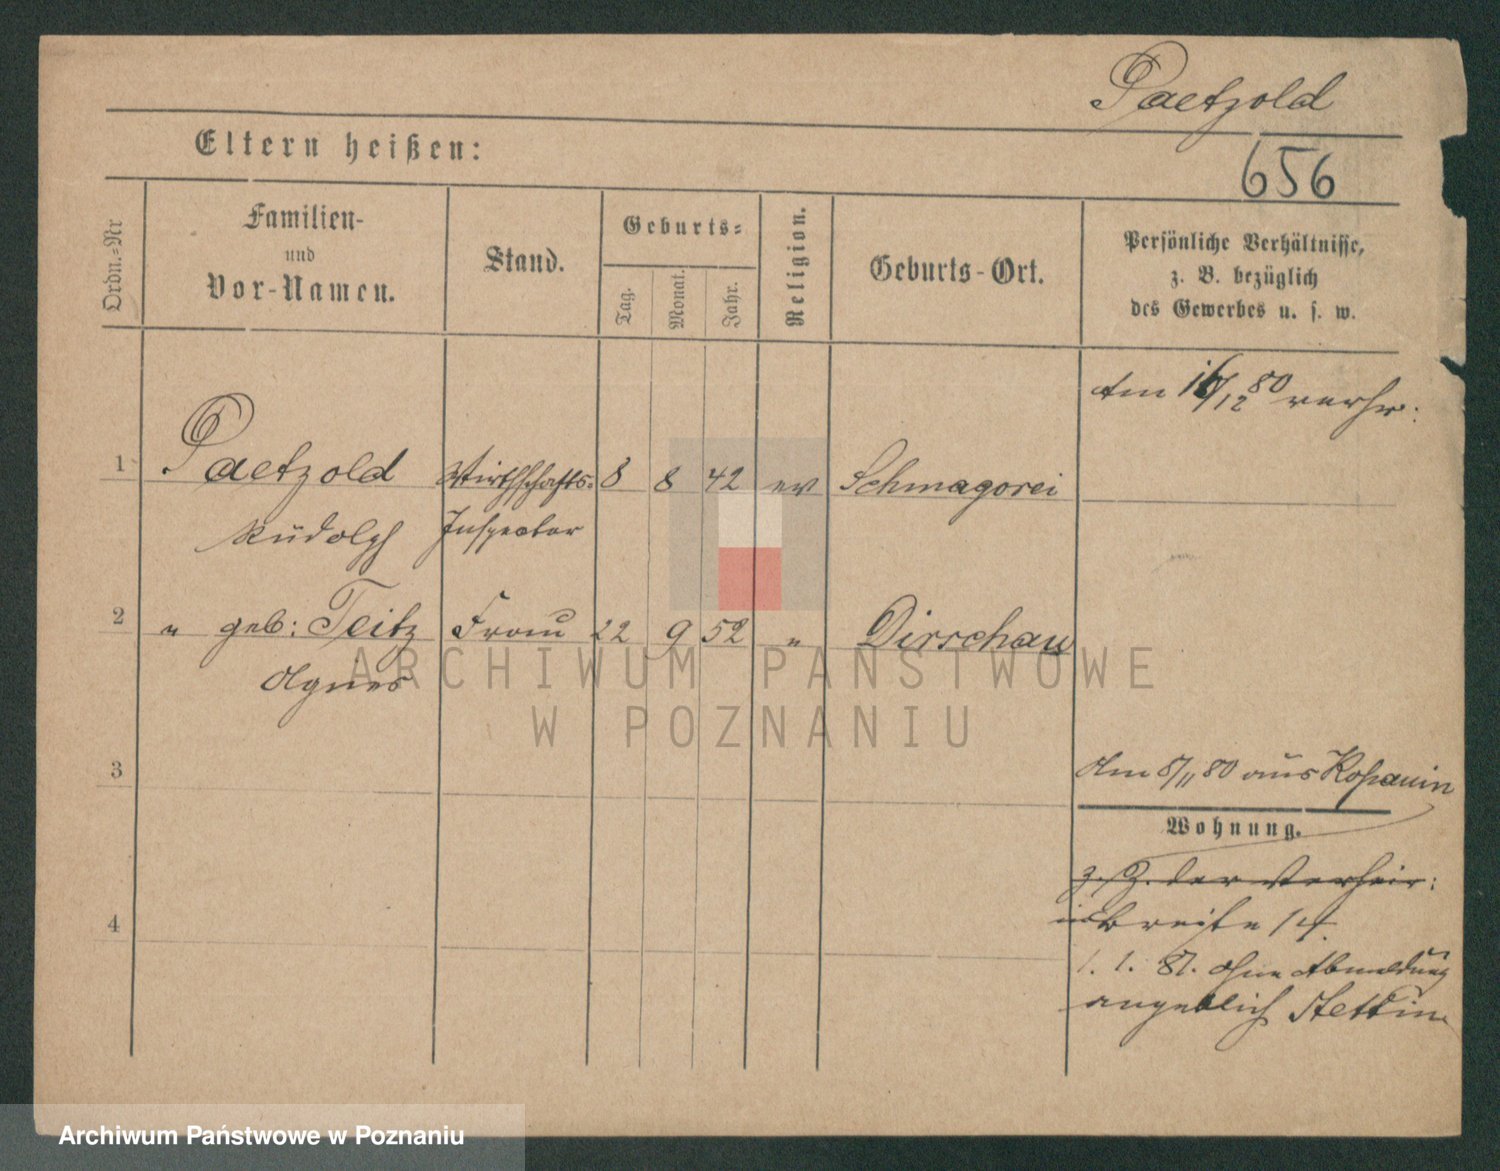 Paetzold
Eltern heißen:
656
Ordn.-Nr
Familien-
und
Vor-Namen.
Stand.
Geburts-
Tag.
Monat.
Jahr.
Religion.
Geburts-Ort.
Persönliche Verhältnisse,
z. B. bezüglich
des Gewerbes u. s. w.
Am 16/12 80 verhr.
1 Paetzold Wirthschafts- 8 8 42 ev Schmagorei
Rudolph Inspector
2 " geb: Teitz Frau 22 9 52 " Dirschau
Agnes
ARCHIWUM PAŃSTWOWE
W POZNANIU
3
Am 5/11 80 aus
Wohnung.
z. Z. der Verheir:
Breite
4
1. 1. 81. ohne Abmeldung
angeblich Stettin
Archiwum Państwowe w Poznaniu